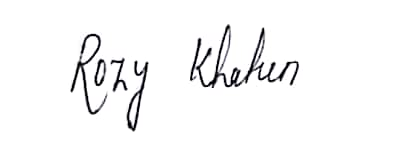 Rozy Khatun